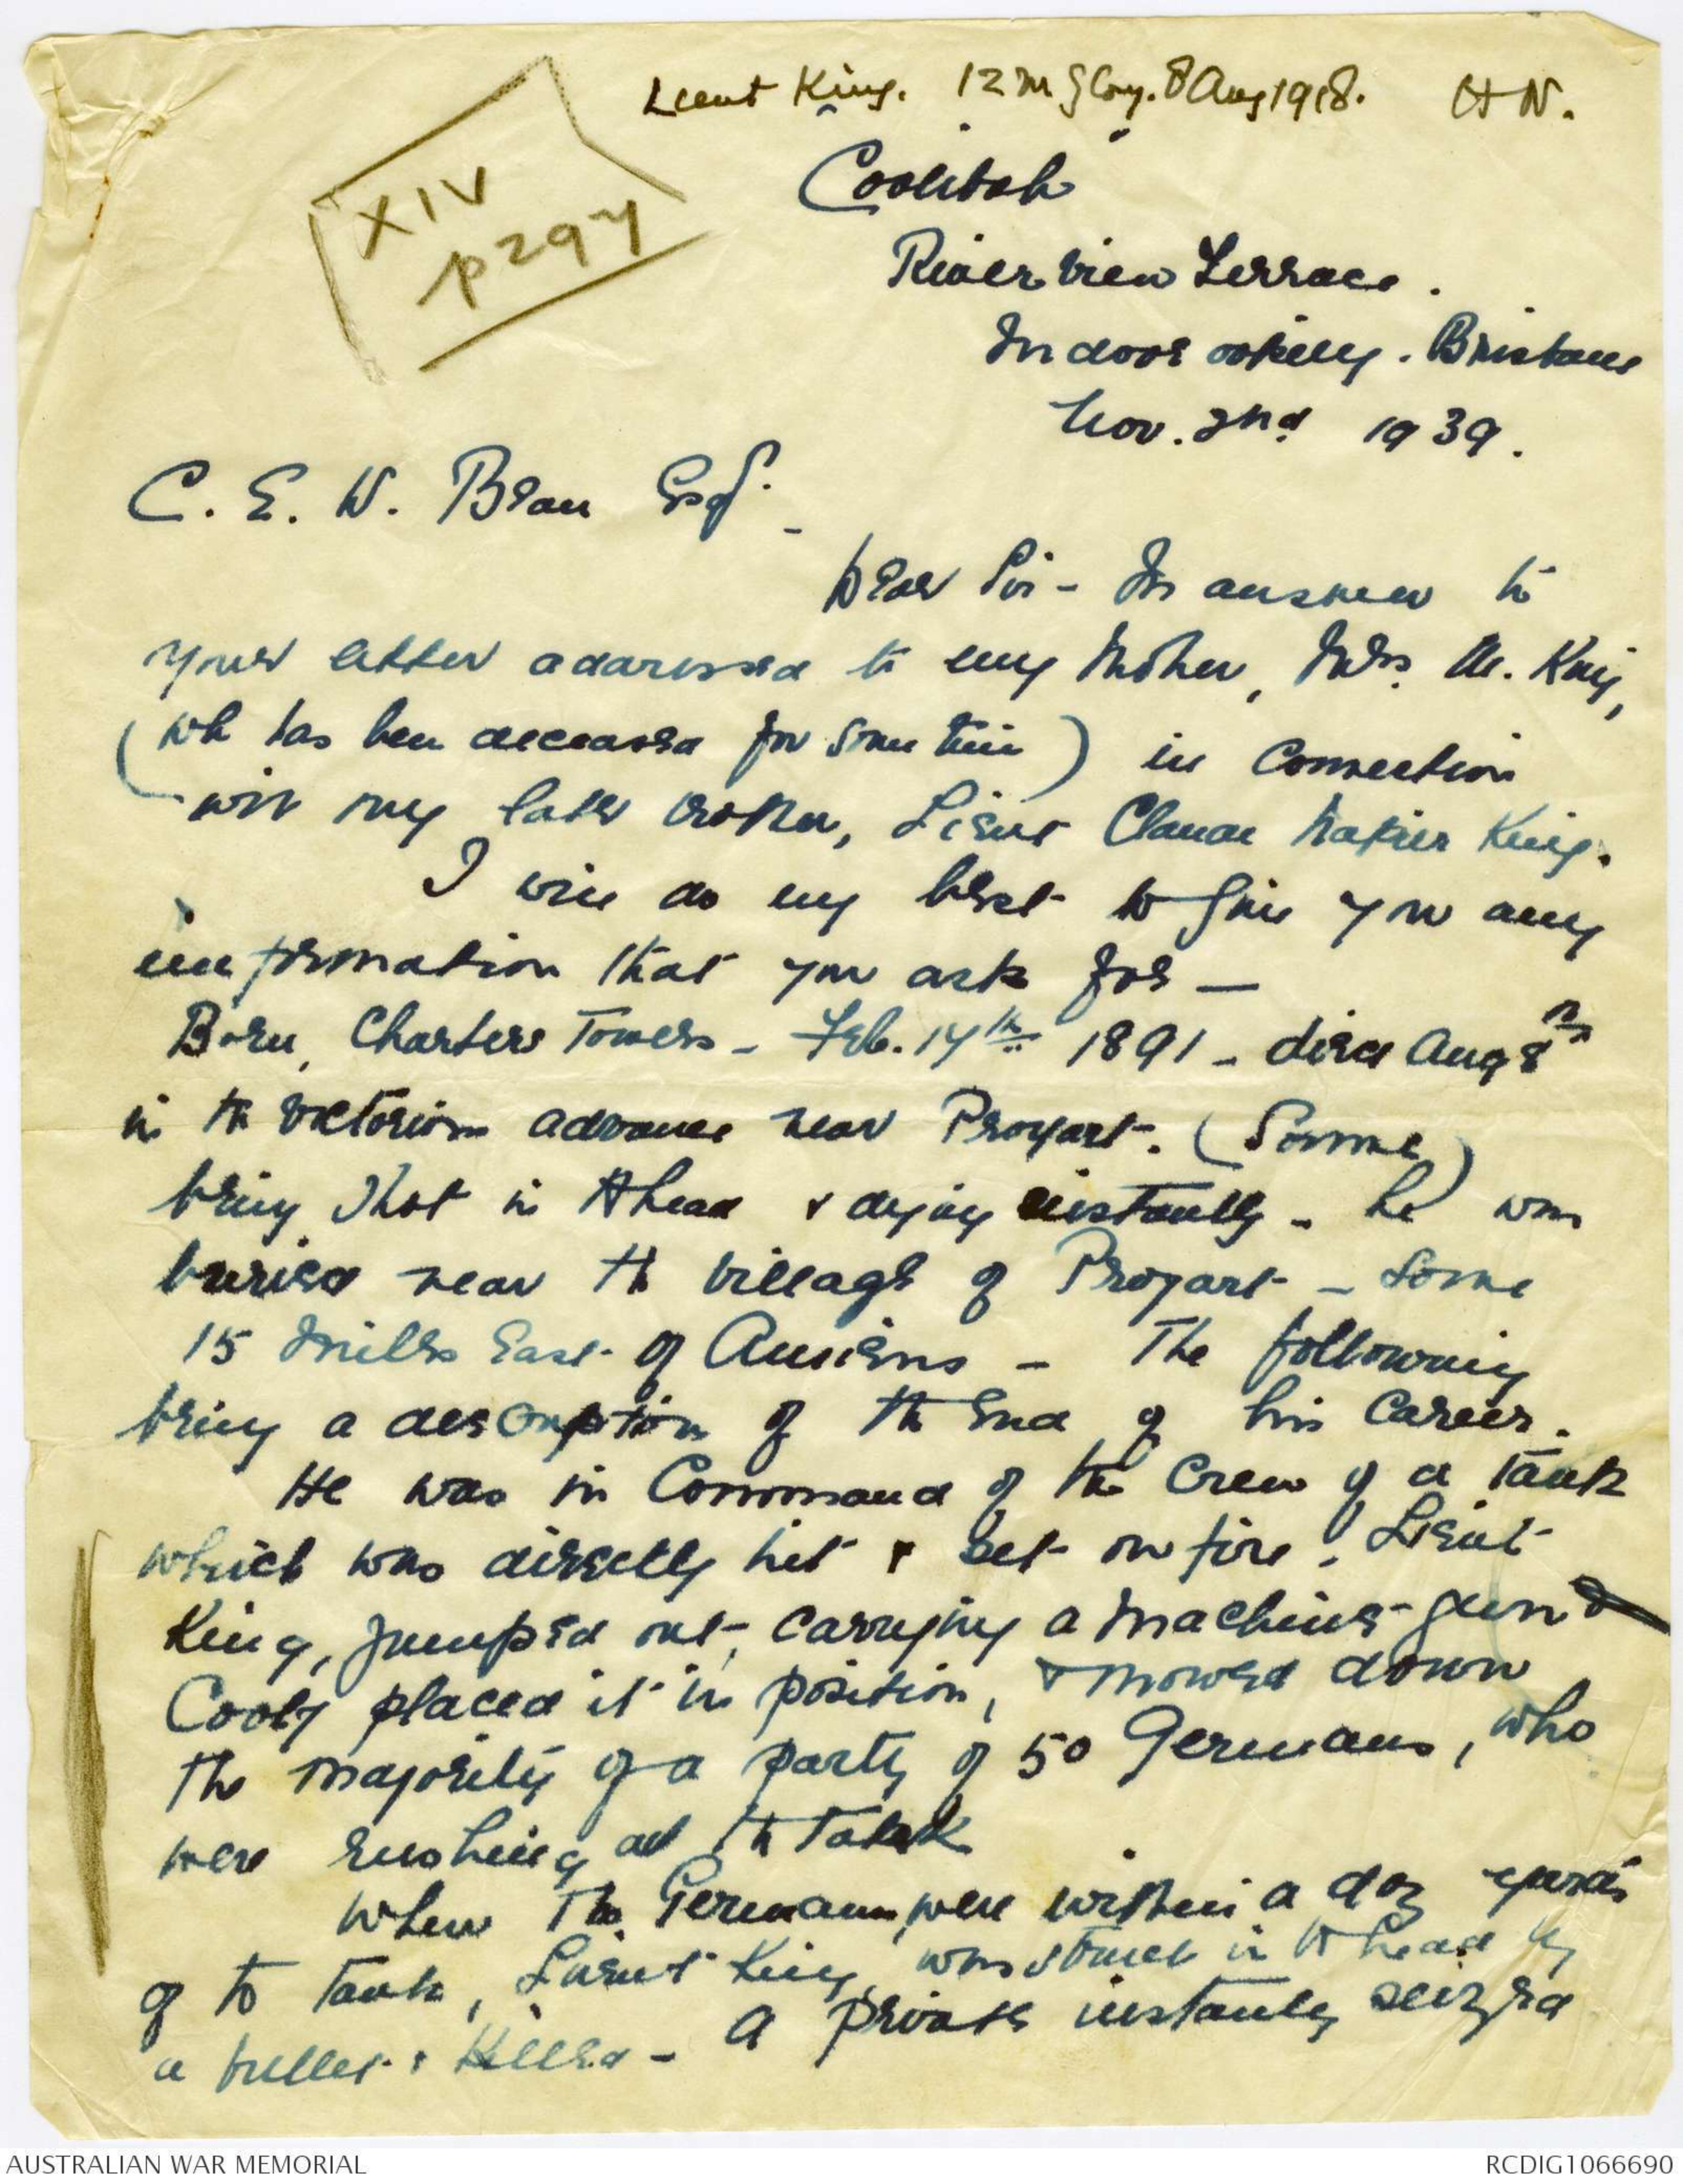 Lieut King. 12 M G Coy. 8 Aug 1918. HN.
XIV
p 297
Coolibah
River view Terrace.
Indooroopilly. Brisbane
Nov. 2nd 1939.
C. E. W. Bean Esq.
Dear Sir - In answer to
your letter addressed to my Mother, Mrs. King,
(who has been deceased for some time) in connection
with my late brother, Lieut Claude Napier King.
I will do my best to give you any
information that you ask for —
Born, Charters Towers - Feb. 14th 1891 - died Aug 8th
in the victorious advance near Proyart. (Somme)
being shot in the head & dying instantly - he was
buried near the village of Proyart - some
15 miles East of Amiens - The following
being a description of the end of his career.
He was in Command of the Crew of a tank
which was directly hit & set on fire. Lieut
King, jumped out, carrying a machine-gun &
Cooly placed it in position, & mowed down
the majority of a party of 50 Germans, who
were rushing at the tank
When the Germans, were within a doz yards
of the tank, Lieut King, was struck in the head by
a bullet & killed - A private instantly seized
AUSTRALIAN WAR MEMORIAL
RCDIG1066690